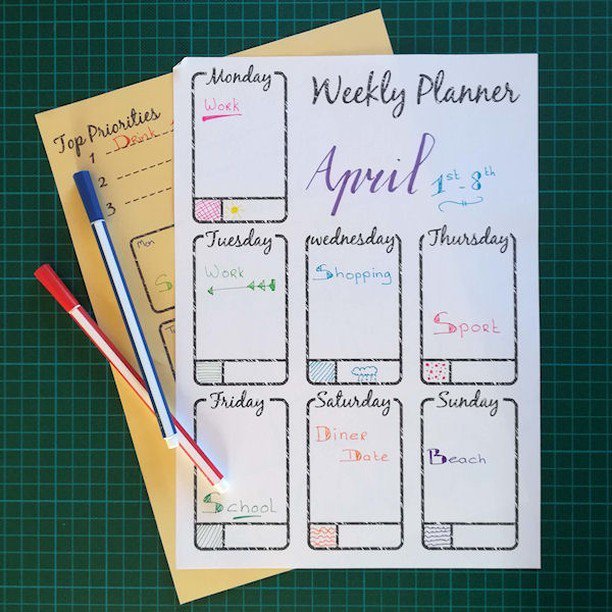 Top Priorities
1 Drink
2
3
Mon
S
Weekly Planner
April 1st - 8th
Monday
Work
Tuesday
Work
wednesday
Shopping
Thursday
Sport
Friday
School
Saturday
Diner
Date
Sunday
Beach